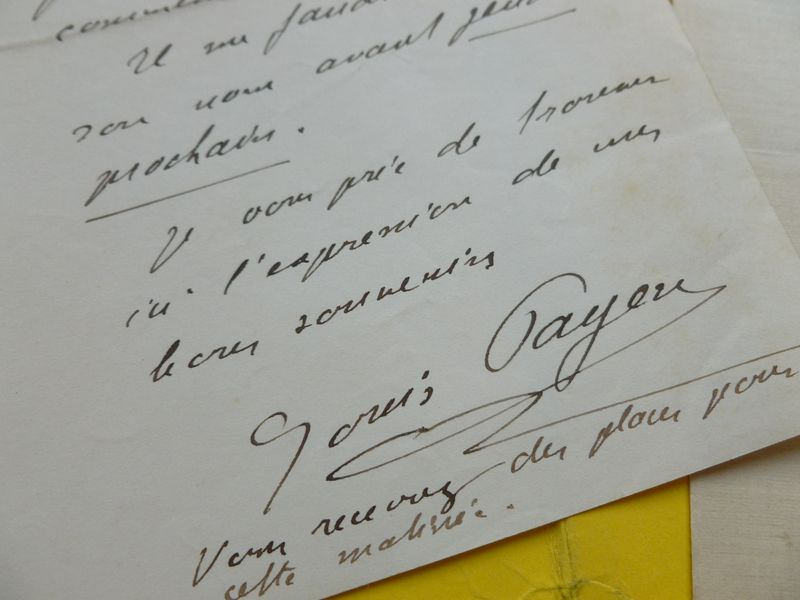 Il me faud
son nom avant jeudi
prochain.
Je vous prie de trouver
ici l'expression de mes
bons souvenirs
Louis Payen
Vous recevrez des places pour
cette matinée.